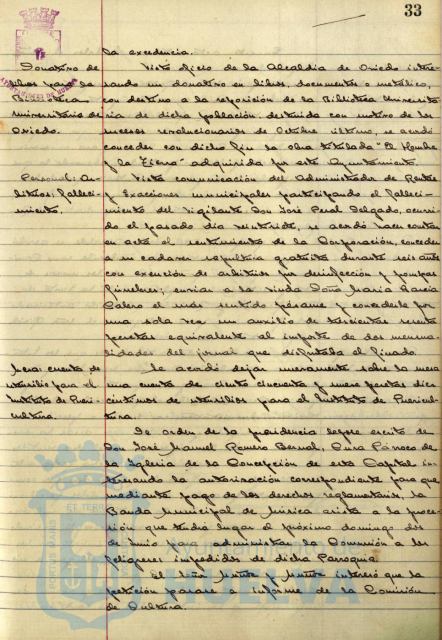 33
la excedencia.
Donativo de
libros para la
Biblioteca
universitaria de
Oviedo.
Visto oficio de la Alcaldía de Oviedo intere-
sando un donativo en libros, documentos o metálico,
con destino a la reposición de la Biblioteca Universita-
ria de dicha población, destruida con motivo de los
sucesos revolucionarios de Octubre último, se acordó
conceder con dicho fin la obra titulada "El Hombre
y la Tierra" adquirida por este Ayuntamiento.
Personal: Ar-
bitrios: falleci-
miento.
Vista comunicación del Administrador de Rentas
y Exacciones municipales participando el falleci-
miento del Vigilante Don José Peral Delgado, ocurri-
do el pasado día veintisiete, se acordó hacer constar
en acta el sentimiento de la Corporación, conceder
a su cadaver sepultura gratuita durante seis años
con exención de arbitrios por desinfección y pompas
fúnebres; enviar a la viuda Doña María García
Calero el más sentido pésame y concederle por
una sola vez un auxilio de trescientas sesenta
pesetas equivalente al importe de dos mensua-
lidades del jornal que disfrutaba el finado.
Mesa: cuenta de
utensilio para el
Instituto de Pueri-
cultura.
Se acordó dejar nuevamente sobre la mesa
una cuenta de ciento cincuenta y nueve pesetas diez
céntimos de utensilios para el Instituto de Puericul-
tura.
De orden de la presidencia leyose escrito de
Don José Manuel Romero Bernal, Cura Párroco de
la Iglesia de la Concepción de esta Capital in-
teresando la autorización correspondiente para que
mediante pago de los derechos reglamentarios, la
Banda Municipal de Música asista a la proce-
sión que tendrá lugar el próximo domingo dos
de Junio para administrar la Comunión a los
feligreses impedidos de dicha Parroquia.
El Señor Muñoz y Muñoz interesó que la
petición pasara a informe de la Comisión
de Cultura.
HUELVA